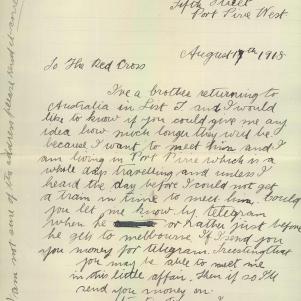 Fifth Street
Port Pirie West
August 17th 1918
To The Red Cross
I've a brother returning to
Australia in Lost T and I would
like to know if you could give me any
idea how much longer they will be
because I want to meet him and I
am living in Port Pirie which is a
whole days travelling and unless I
heard the day before I could not get
a train in time to meet him. Could
you let me know by telegram
when he or rather just before
he gets to melbourne If I send you
you money for telegram. trusting that
you may be able to meet me
in this little affair. then if so I'll
send you money on.
I am not sure of the address please send it some